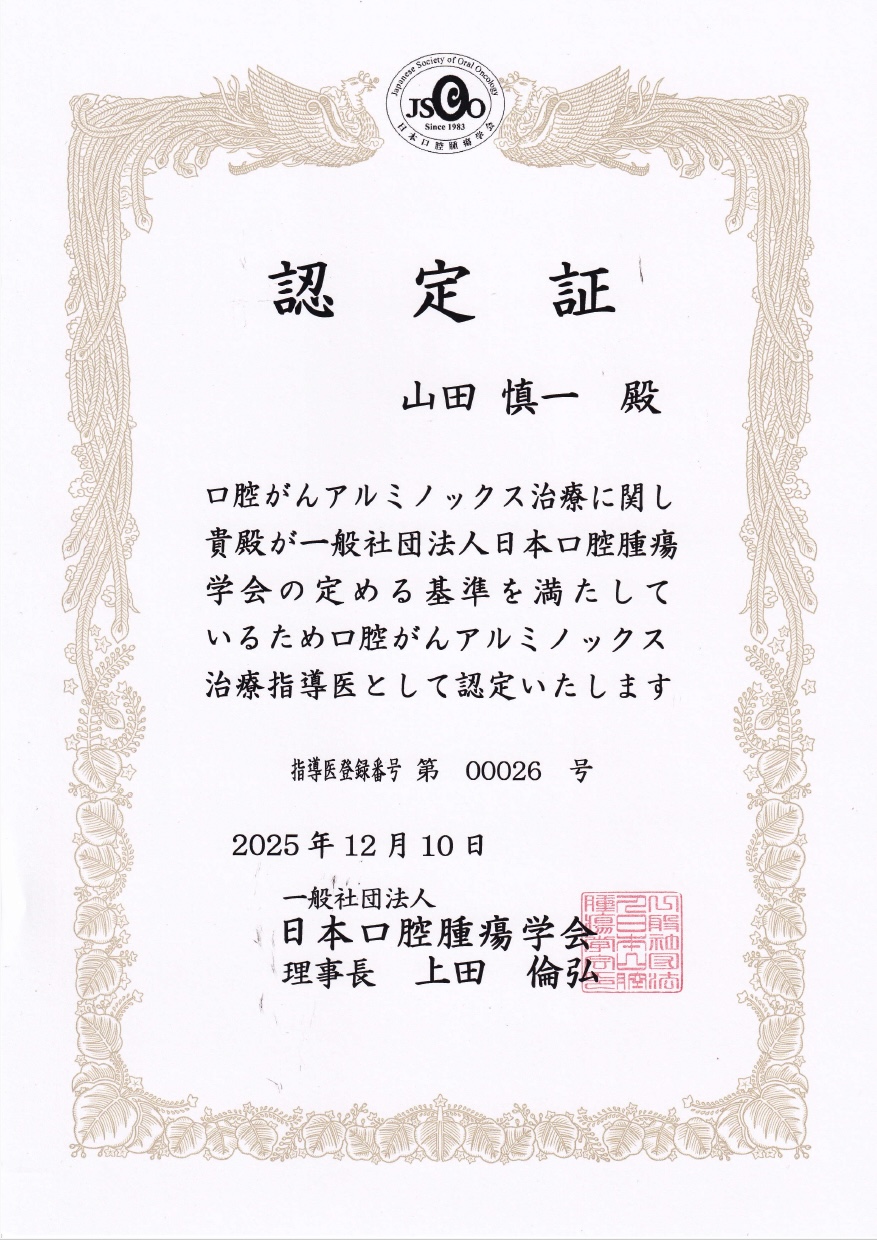 Japanese Society of Oral Oncology
JSOO
Since 1983
日本口腔腫瘍学会
認 定 証
山田 慎一 殿
口腔がんアルミノックス治療に関し
貴殿が一般社団法人日本口腔腫瘍
学会の定める基準を満たして
いるため口腔がんアルミノックス
治療指導医として認定いたします
指導医登録番号 第 00026 号
2025年12月10日
一般社団法人
日本口腔腫瘍学会
理事長 上田 倫弘